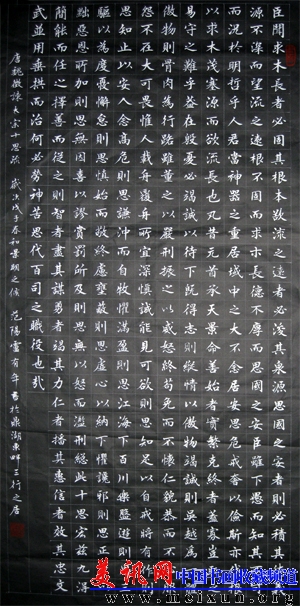 臣聞求木長者必固其根本欲流之遠者必浚其泉源思國之安者必積其
源不深而望流之遠根不固而求木長德不厚而思國之安臣雖下愚而知其
而況於明哲乎人君當神器之重居域中之大不念居安思危戒奢以儉斯亦
以求木茂塞源而欲流長也凡昔元首承天景命善始者實繁克終者蓋寡豈
易守之難乎蓋在殷憂必竭誠以待下既得志則縱情以傲物竭誠則吳越爲
傲物則骨肉爲行路雖董之以嚴刑振之以威怒終苟免而不懷仁貌恭而不
怨不在大可畏惟人載舟覆舟所宜深慎誠能見可欲則思知足以自戒將有作
思知止以安人念高危則思謙沖而自牧懼滿盈則思江海下百川樂盤遊則思
以爲度憂懈怠則思慎始而敬終慮壅蔽則思虛心以納下懼讒邪則思正
黜惡恩所加則思無因喜以謬賞罰所及則思無以怒而濫刑總此十思宏茲九
簡能而任之擇善而從之則智者盡其謀勇者竭其力仁者播其惠信者效其忠文
武並用垂拱而治何必勞神苦思代百司之職役也哉
唐魏徵諫太宗十思疏 歲次戊子春和景明之候 范陽盧有年書於鼎湖東畔三行之居
美讯网 中国书画收藏频道